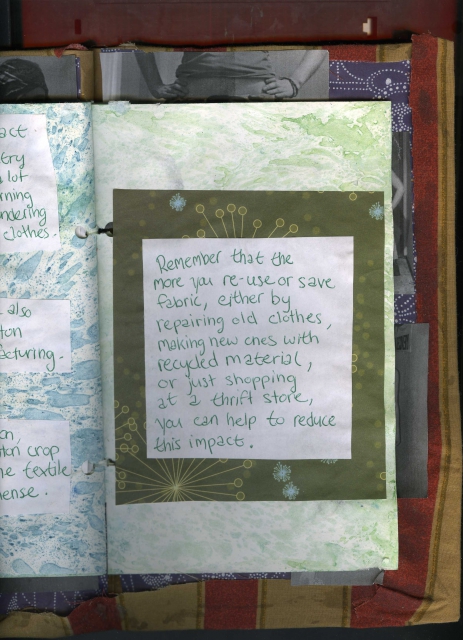 act.
try
a lot
rning
ndering
clothes.
also
ton
acturing.
on,
ton crop
he textile
ense.
Remember that the
more you re-use or save
fabric, either by
repairing old clothes,
making new ones with
recycled material,
or just shopping
at a thrift store,
you can help to reduce
this impact.